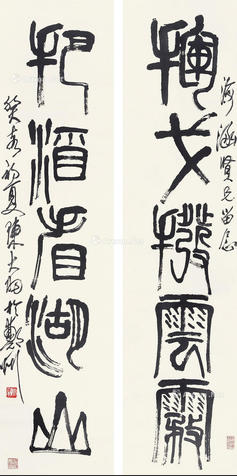 海涵贤兄留念
揮戈撥雲霧
把酒看湖山
癸亥初夏陳大羽於鄭州